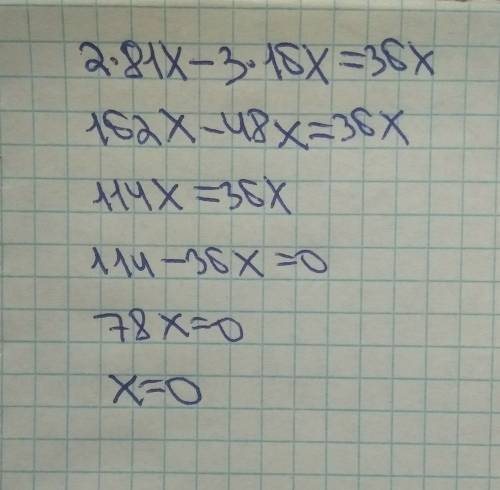 2·81x-3·16x=36x
162x-48x=36x
114x=36x
114-36x=0
78x=0
x=0